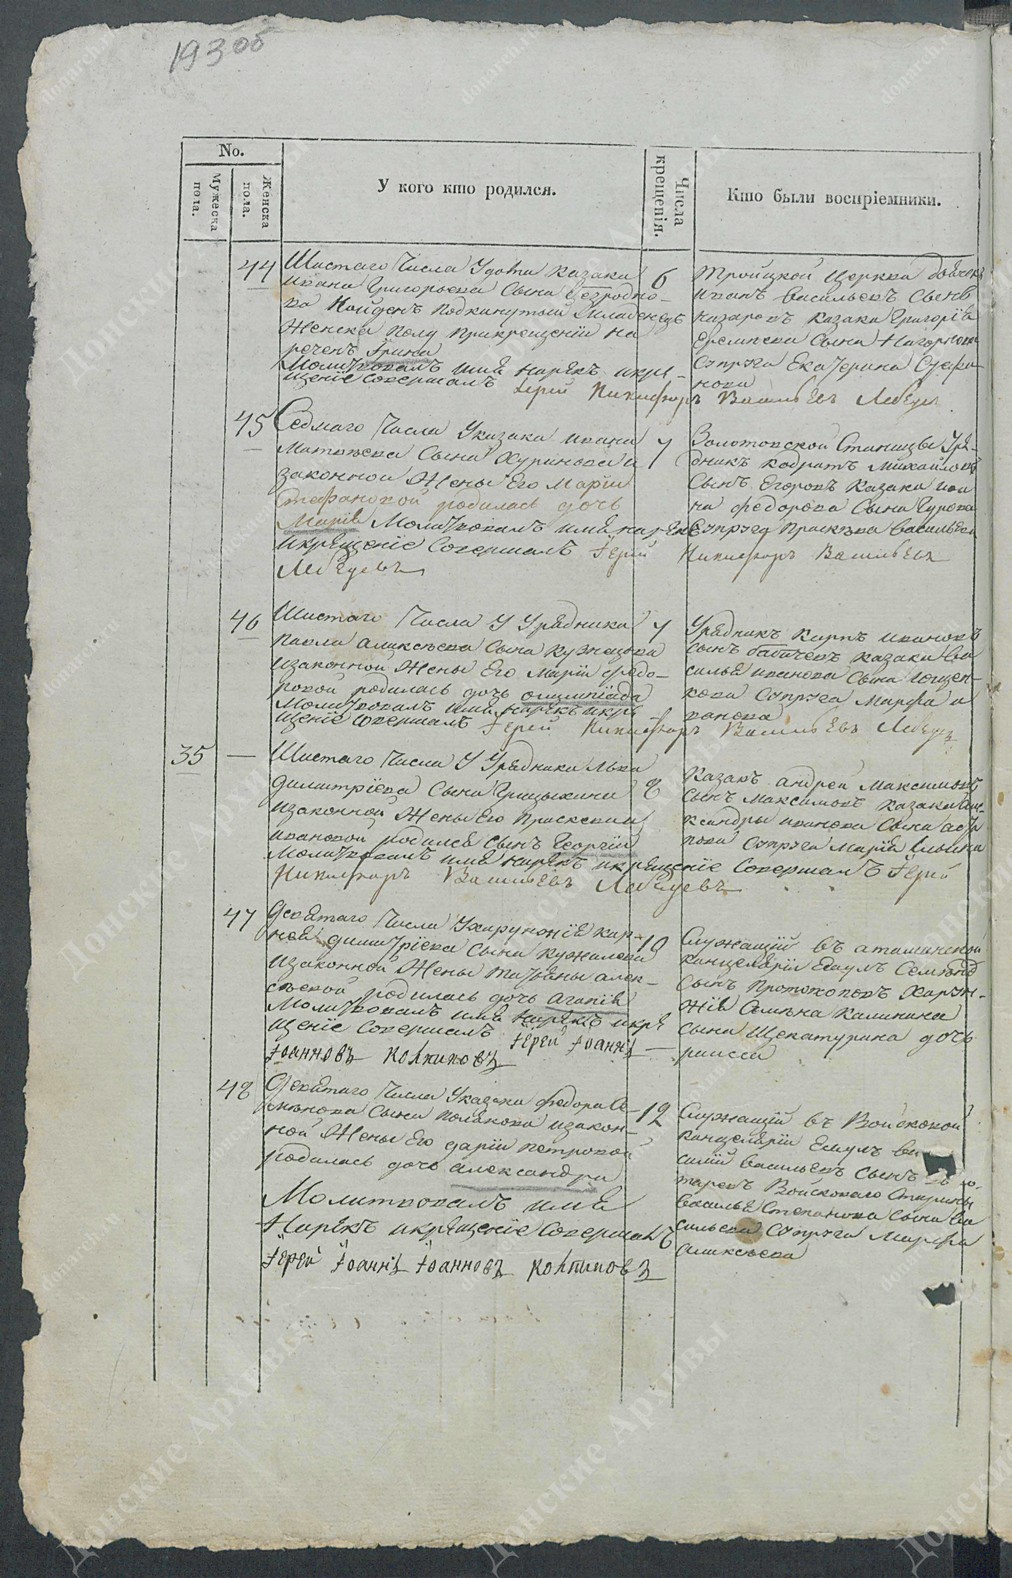 193 об
No.
Мужеска пола.
Женска пола.
У кого кто родился.
Числа крещенія.
Кто были воспріемники.
44
Шистаго Числа Удоты Казака
Ивана Григорьева Сына
Найденъ Подкинутый Младенецъ
Женска Полу Прикрещеніи на
реченъ Ирина
Молитвовалъ имя нарекъ икре-
щеніе Совершалъ Іерей Никифоръ Васильевъ Лебедевъ
6
Троицкой Церкви
Иванъ Васильевъ Сынъ
Назаровъ казака Григорія
Сына Нагорнова
Супруга Екатерина Стефа
нова
45
Седмаго Числа Указака Ивана
Матвѣева Сына Куринова и
законной Жены Его Маріи
Стефановой родилась дочь
Марія Молитвовалъ имя нарекъ
икрещеніе Совершалъ Іерей Никифоръ Васильевъ
Лебедевъ
7
Золотовской Станицы Уря-
дникъ Михайловъ
Сынъ Егоровъ Казака Ива
на Федорова Сына Гурова
Супруга Прасковья Васильева
46
Шистаго Числа У Урядника
Павла Аликсѣева Сына Кузнецова
изаконной Жены Его Маріи Федо-
ровой родилась дочь Олимпіада
Молитвовалъ имя нарекъ икре
щеніе Совершалъ Іерей Никифоръ Васильевъ Лебедевъ
7
Урядникъ Карпъ Ивановъ
сынъ Бабичевъ Казака Ва
силья Иванова Сына Ющен-
кова Супруга Марфа и
ванова
35
Шистаго Числа У Урядника Льва
Димитріева Сына Грицыхина
изаконной Жены Его Прасковьи
Ивановой родился Сынъ Георгій
Молитвовалъ имя нарекъ икрещеніе Совершалъ Іерей
Никифоръ Васильевъ Лебедевъ
8
Казакъ Андрей Максимовъ
Сынъ Максимовъ Казака Алек
ксандры Иванова Сына
Супруга Марія Ильина
47
Девятаго Числа Ухарунжія Кар-
нея Димитріева Сына
изаконной Жены Татьяны Алек-
сѣевой родилась дочь Агапія
Молитвовалъ имя нарекъ икре
щеніе Совершалъ Іерей Іоаннъ
Іоанновъ Колпиковъ
10
Служащій въ атаманской
канцеляріи Есаулъ Семенъ
Сынъ Протопоповъ Харун-
жія Семена Калинина
Сына Щекатурина дочь
раисса
48
Девятаго Числа Указака Федора Се-
мѣнова Сына Полякова изакон-
ной Жены Его Даріи Петровой
родилась дочь Александра
Молитвовалъ имя
Нарекъ икрещеніе Совершалъ
Іерей Іоаннъ Іоанновъ Колпиковъ
12
Служащій въ Войсковой
канцеляріи Есаулъ Ва
силій Васильевъ Сынъ
Войсковаго Старшины
Василья Степанова Сына Ва
сильева Супруга Марфа
Аликсѣева